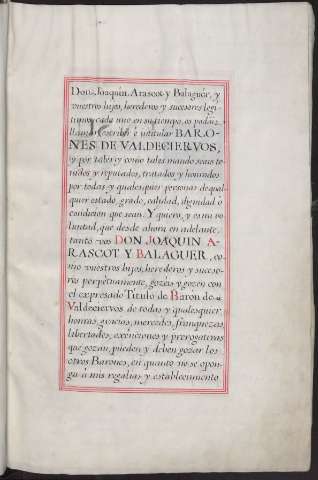 Don Joaquin Arascot y Balaguér, y
vuestros hijos, herederos y sucesores legi-
timos, cada uno en su tiempo, os podais
llamar, escribir é intitular BARO-
NES DE VALDECIERVOS,
y por tales, y como tales mando seais te-
nidos y reputados, tratados y honrados
por todas y qualesquier personas de qual
quier estado, grado, calidad, dignidad ó
condicion que sean. Y quiero, y es mi vo
luntad, que desde ahora en adelante,
tanto vos DON JOAQUIN A-
RASCOT Y BALAGUER, co-
mo vuestros hijos, herederos y suceso-
res perpetuamente, gozeis y gozen con
el expresado Titulo de Baron de
Valdeciervos, de todas y qualesquier
honras, gracias, mercedes, franquezas
libertades, exênciones y prerogativas
que gozan, pueden y deben gozar los
otros Barones, en quanto no se opon-
ga á mis regalias y establecimiento